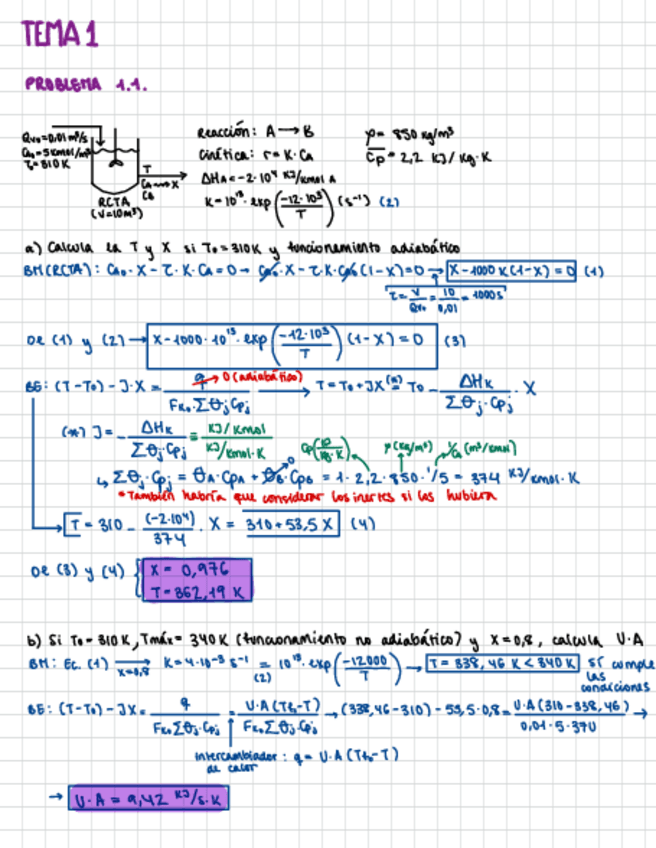 TEMA 1
PROBLEMA 1.1.
Qv₀=0,01 m³/s
Ca₀=5kmol/m³
T₀=310K
T
Ca⟿X
Cb
RCTA
(V=10m³)
Reacción: A → B
Cinética: r = K·Ca
ΔHA=-2·10⁴ KJ/Kmol A
K=10¹³·exp(-12·10³/T) (s⁻¹) (2)
ρ= 850 Kg/m³
Cp= 2,2 KJ/Kg·K
a) Calcula la T y X si T₀=310K y funcionamiento adiabático
BM(RCTA): Ca₀·X - τ·K·Ca=0 → Ca₀·X - τ·K·Ca₀(1-X)=0 → X-1000K(1-X)=0 (1)
τ = V/Qv₀ = 10/0,01 = 1000s
De (1) y (2) → X-1000·10¹³·exp(-12·10³/T)(1-X)=0 (3)
BE: (T-T₀)-J·X = q/(FK₀·ΣΘj·Cpj) → T=T₀+JX (*)= T₀ - ΔHK/(ΣΘj·Cpj)·X
0 (adiabático)
(*) J=- ΔHK/(ΣΘj·Cpj) = KJ/Kmol / KJ/Kmol·K
Cp(KJ/Kg·K) ρ(Kg/m³) 1/Ca (m³/kmol)
↳ ΣΘj·Cpj = ΘA·CpA + ΘB·CpB = 1·2,2·850·1/5 = 374 KJ/Kmol·K
0
*También habría que considerar los inertes si los hubiera
T = 310 - (-2·10⁴)/374 · X = 310+53,5X (4)
De (3) y (4) { X= 0,976
T=362,19 K
b) Si T₀=310K, Tmáx= 340K (funcionamiento no adiabático) y X=0,8, calcula U·A
BM: Ec. (1) → X=0,8 K=4·10⁻³ s⁻¹ =(2) 10¹³·exp(-12000/T) → T=338,46 K < 340K sí cumple
las
condiciones
BE: (T-T₀)-JX = q/(FK₀ΣΘj·Cpj) = U·A(Tf₀-T)/(FK₀ΣΘj·Cpj) → (338,46-310)-53,5·0,8= U·A(310-338,46)/(0,01·5·370) →
intercambiador : q= U·A(Tf₀-T)
de calor
→ U·A = 9,42 KJ/s·K